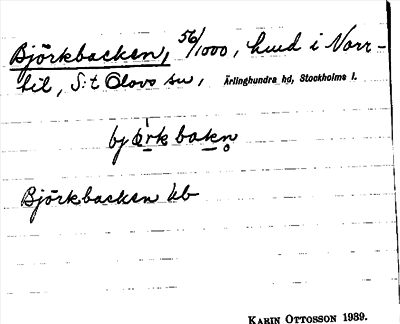 Björkbacken, 56/1000, hmd i Norr-
til, S:t Olovs sn, Ärlinghundra hd, Stockholms l.
björk bakn̥
Björkbacken kb
KARIN OTTOSSON 1939.